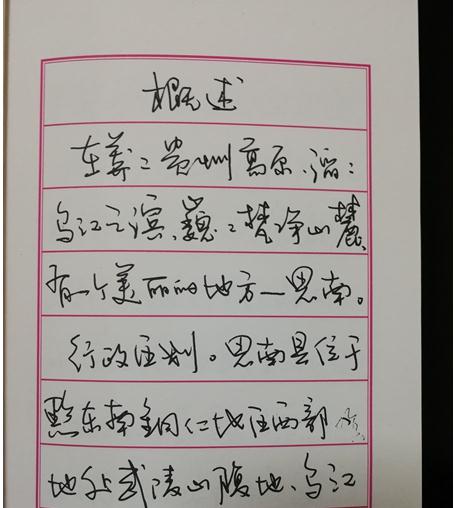 概述
在莽〻贵州高原、滔〻
乌江之滨、巍〻梵净山麓、
有一个美丽的地方—思南。
行政区划。思南县位于
黔东南铜仁地区西部
地处武陵山腹地、乌江